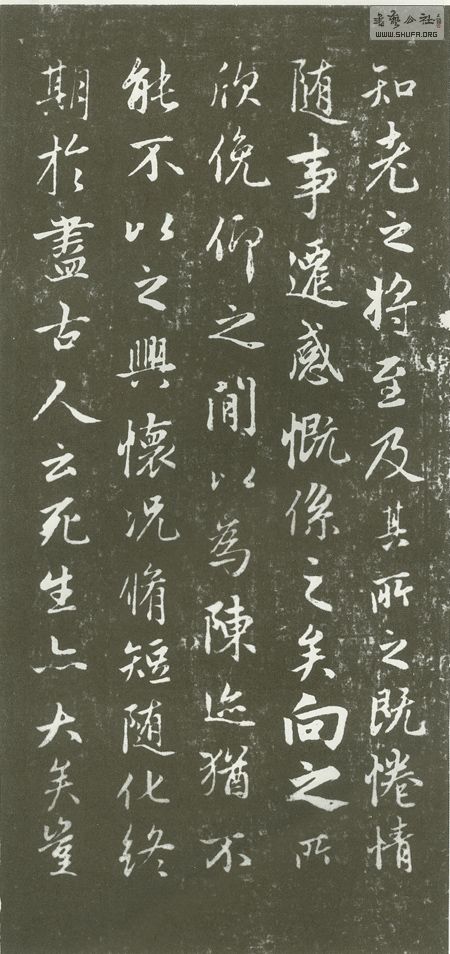 書藝公社
WWW.SHUFA.ORG
知老之將至及其所之既惓情
随事遷感慨係之矣向之所
欣俛仰之閒以為陳迹猶不
能不以之興懷况脩短随化終
期於盡古人云死生亦大矣豈